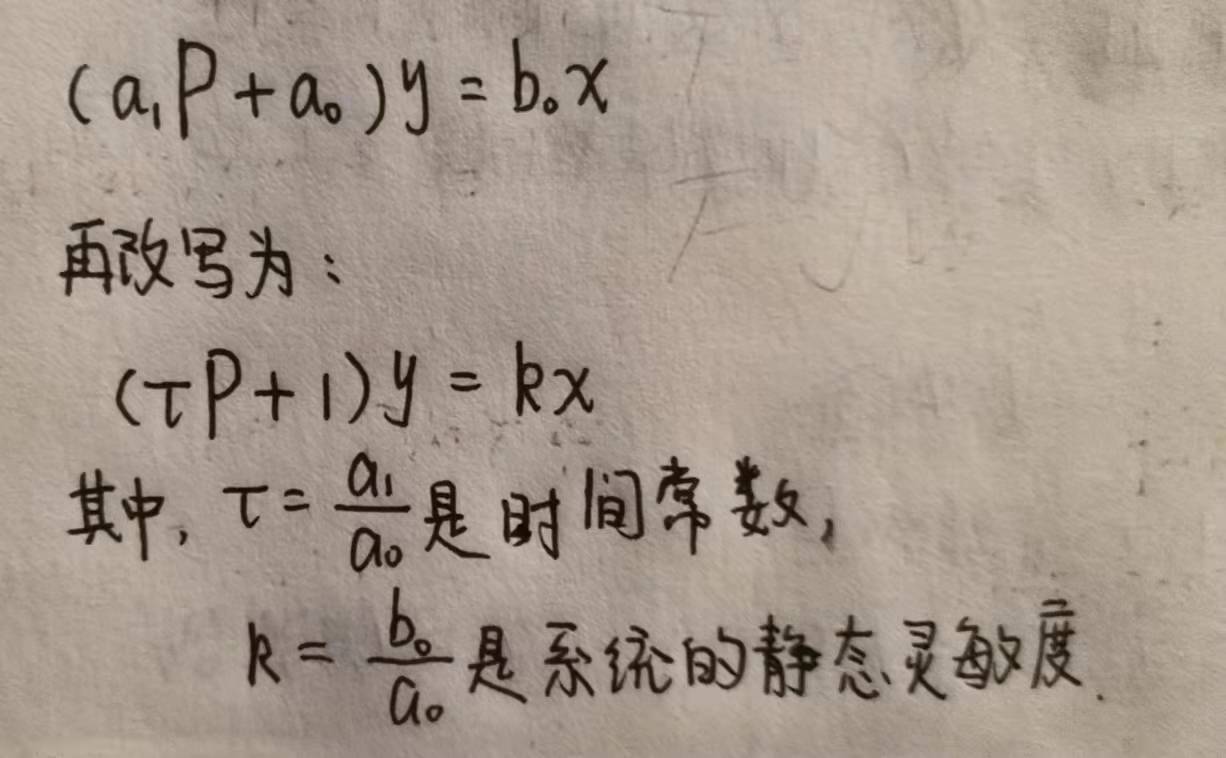 (a₁P + a₀)y = b₀x
再改写为：
(τP + 1)y = kx
其中, τ = a₁/a₀ 是时间常数,
k = b₀/a₀ 是系统的静态灵敏度.